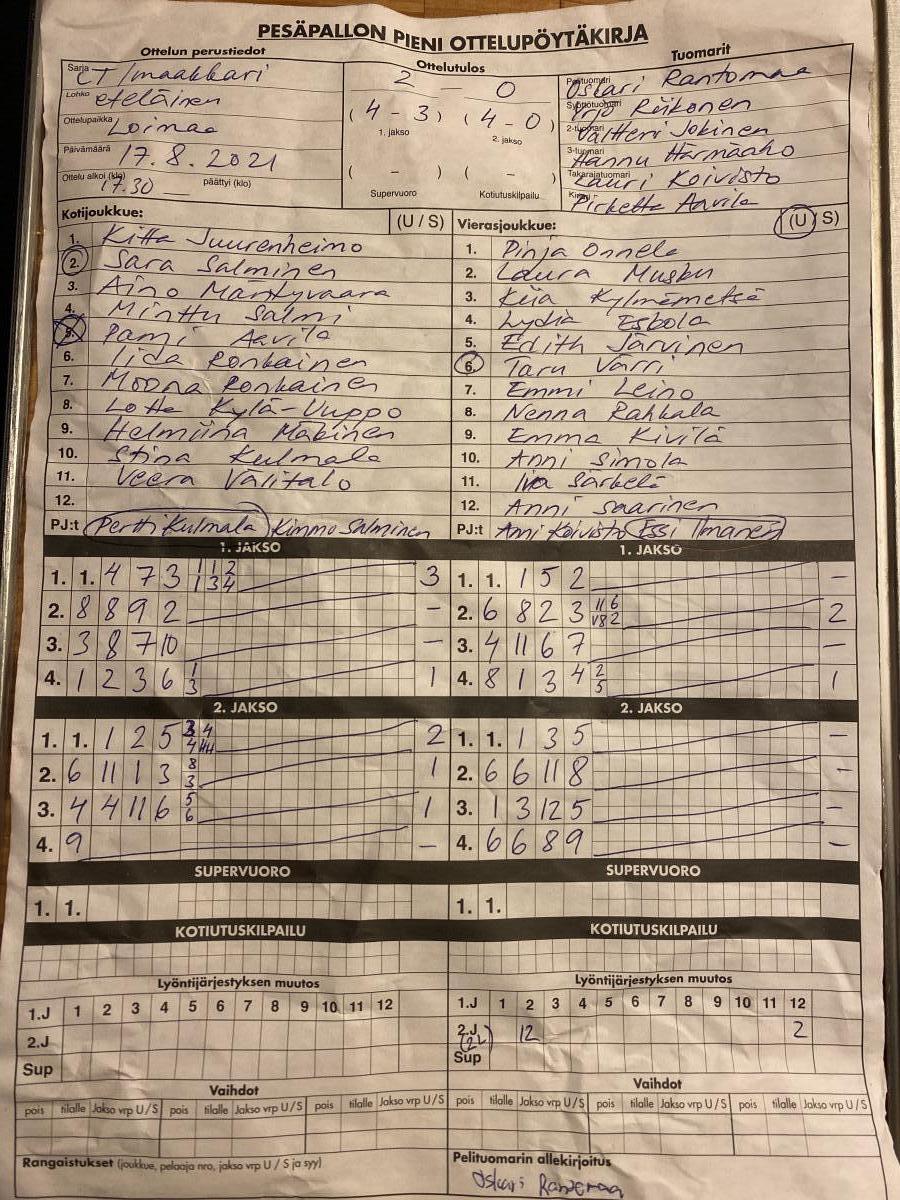 PESÄPALLON PIENI OTTELUPÖYTÄKIRJA
Ottelun perustiedot
Sarja CT/maakkari
Lohko eteläinen
Ottelupaikka Loimaa
Päivämäärä 17.8.2021
Ottelu alkoi (klo) 17.30 päättyi (klo)
Ottelutulos
2 - 0
(4-3) (4-0)
1. jakso 2. jakso
( - ) ( - )
Supervuoro Kotiutuskilpailu
Tuomarit
Pelituomari Oskari Rantamaa
Syöttötuomari Yrjö Reikonen
2-tuomari Valtteri Jokinen
3-tuomari Hannu Härmäaho
Takarajatuomari Lauri Koivisto
Kirjuri Pirketta Aavila
Kotijoukkue: (U / S)
1. Kitta Juurenheimo
2. Sara Salminen
3. Aino Mäntyvaara
4. Minttu Salmi
5. Pami Aavila
6. Iida Ronkainen
7. Moona Ronkainen
8. Lotta Kylä-Uuppo
9. Helmiina Mäkinen
10. Stina Kulmala
11. Veera Välitalo
12.
PJ:t Pertti Kulmala Kimmo Salminen
Vierasjoukkue: (U / S)
1. Pinja Onnela
2. Laura Musku
3. Kiia Kylmämetsä
4. Lydia Eskola
5. Edith Järvinen
6. Taru Värri
7. Emmi Leino
8. Nenna Rahkala
9. Emma Kivilä
10. Anni Simola
11. Iita Särkelä
12. Anni Saarinen
PJ:t Anni Koivisto Essi Ilmanen
1. JAKSO
1. 1. 4 7 3 1 1 2 3
1 3 4
2. 8 8 9 2 -
3. 3 8 7 10 -
4. 1 2 3 6 1 1
3
1. JAKSO
1. 1. 1 5 2 -
2. 6 8 2 3 11 6 2
8 2
3. 4 11 6 7 -
4. 8 1 3 4 2 1
5
2. JAKSO
1. 1. 1 2 5 3 4 2
4
2. 6 11 1 3 8 1
3
3. 4 4 11 6 5 1
6
4. 9 -
2. JAKSO
1. 1. 1 3 5 -
2. 6 6 11 8 -
3. 1 3 12 5 -
4. 6 6 8 9 -
SUPERVUORO
1. 1.
SUPERVUORO
1. 1.
KOTIUTUSKILPAILU
KOTIUTUSKILPAILU
Lyöntijärjestyksen muutos
1.J 1 2 3 4 5 6 7 8 9 10 11 12
2.J
Sup
Lyöntijärjestyksen muutos
1.J 1 2 3 4 5 6 7 8 9 10 11 12
2.J 12 2
(2L)
Sup
Vaihdot
pois tilalle Jakso vrp U/S pois tilalle Jakso vrp U/S pois tilalle Jakso vrp U/S
Vaihdot
pois tilalle Jakso vrp U/S pois tilalle Jakso vrp U/S pois tilalle Jakso vrp U/S
Rangaistukset (joukkue, pelaaja nro, jakso vrp U / S ja syy)
Pelituomarin allekirjoitus
Oskari Rantamaa